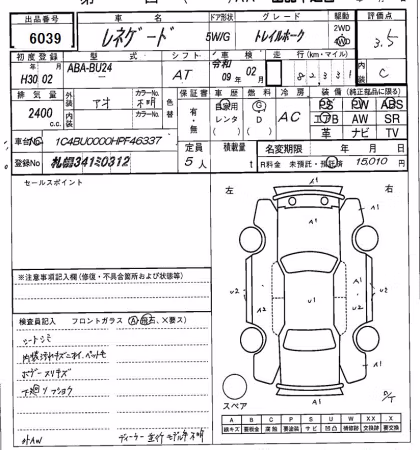 出品番号 車名 ドア形状 グレード 駆動 評価点
6039 レネゲード 5W/G トレイルホーク 2WD 3.5
初度登録 型式 シフト 車検 走行(km・マイル) 内装
H30 02 ABA-BU24 AT 令和 09年 02月 82331 C
排気量 外装 カラーNo. 色替 保証書 車歴 燃料 冷房 装備(純正品に限る)
2400 c.c. アオ 不明 有・無 自家用 レンタ G D AC PS PW ABS
内装 カラーNo. エアB AW SR
革 ナビ TV
車台No 1C4BU0000HPF46337 定員 積載量 名変期限 年 月 日
登録No 札幌341ミ0312 5人 t R料金 未預託・預託済 15,010円
セールスポイント
左 右
A1
A1 A1
U2 A2 U1 A1 U2
A1 A1
A1
スペア
※注意事項記入欄(修復・不具合箇所および状態等)
検査員記入 フロントガラス(A、飛石、X要ス)
シートシミ
内装汚れキズニオイ、ペットモ
ボデースリキズ
下廻リフショク
外AW ディーラー 並行 モデル年不明
A B C P S U W XX X
線キズ 要板金 腐蝕 要塗装 サビ 凹凸 補修跡 交換跡 要交換